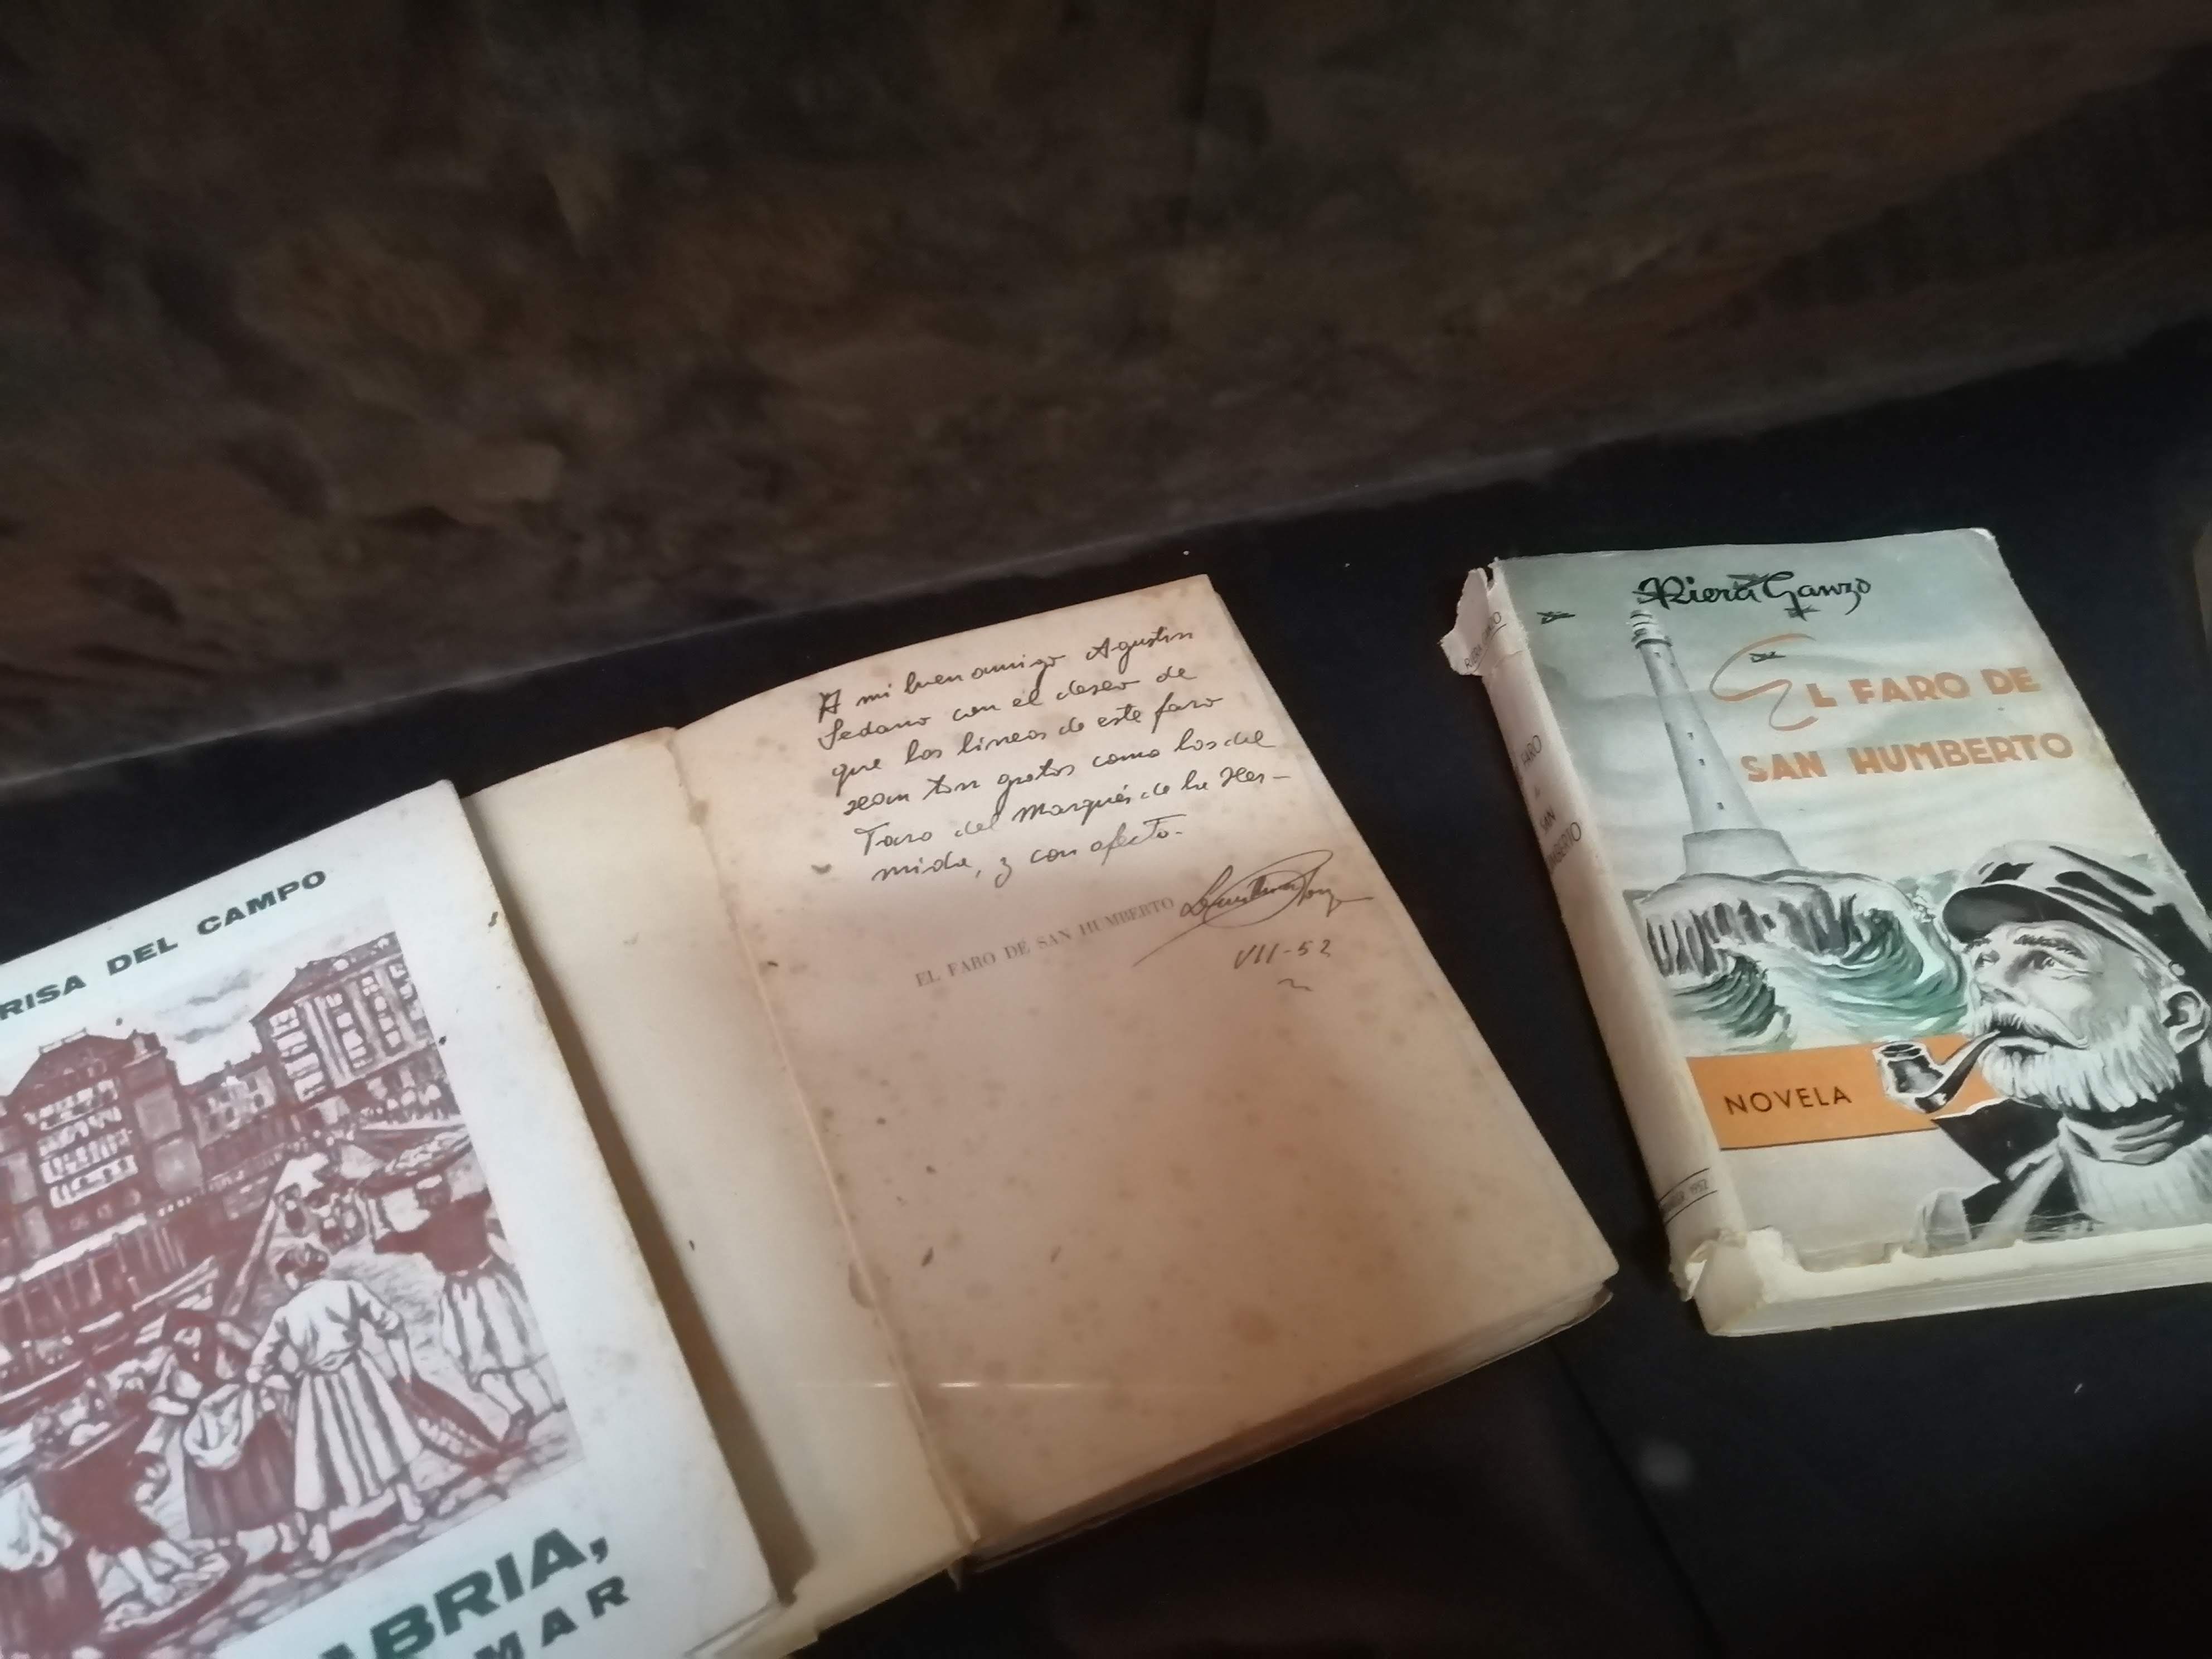 RISA DEL CAMPO
ABRIA,
MAR
A mi buen amigo Agustin
Sedano con el deseo de
que las lineas de este faro
sean tan gratas como las del
Faro del Marqués de la Her-
mida, y con afecto.
EL FARO DE SAN HUMBERTO
VII-52
Riera Ganzo
EL FARO DE
SAN HUMBERTO
NOVELA
RIERA GANZO
FARO
SAN
1952